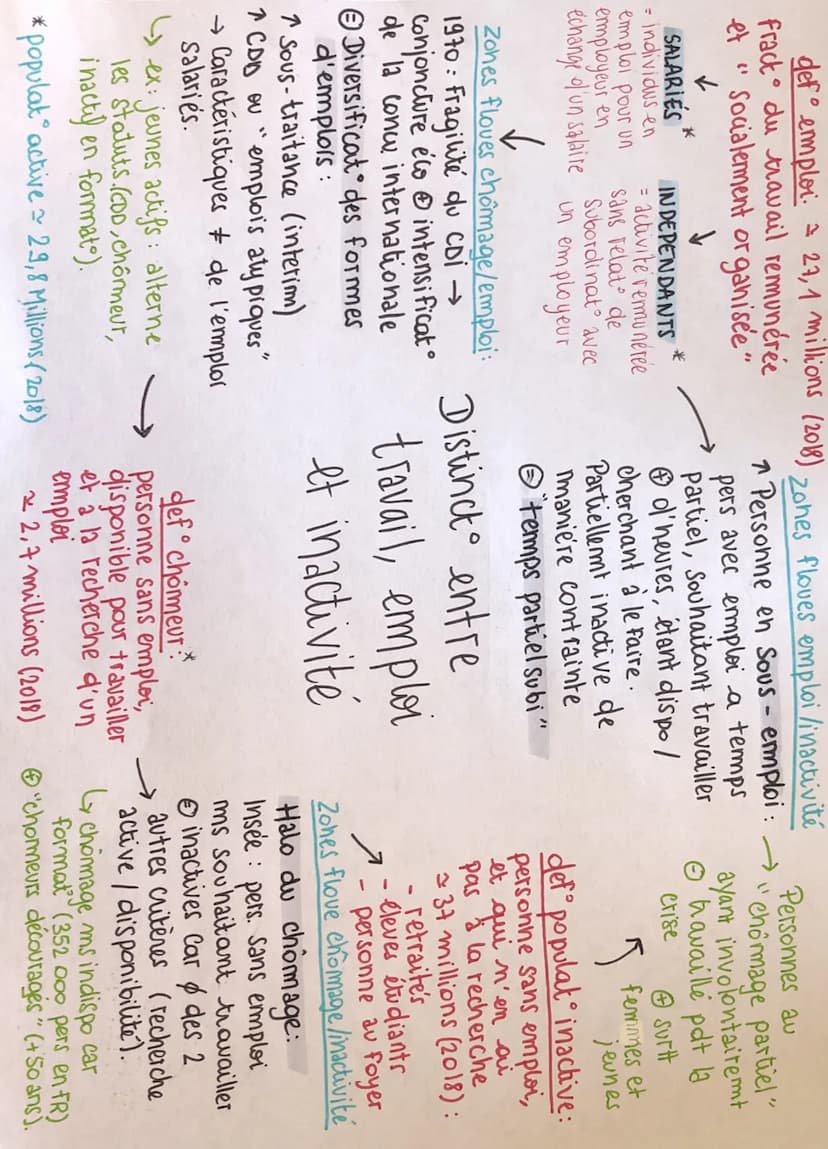 def° emploi ≃ 27,1 millions (2018)
fract° du travail rémunérée
et "socialement organisée"
SALARIÉS *
= individus en
emploi pour un
employeur en
échange d'un salaire
INDEPENDANTS *
= activité rémunérée
sans relat° de
subordinat° avec
un employeur
zones floues emploi/inactivité
↑ Personne en sous-emploi :
pers avec emploi a temps
partiel, souhaitant travailler
⊕ d'heures, étant dispo/
cherchant à le faire.
Partiellemt inactive de
manière contrainte
⊜ "temps partiel subi"
→ Personnes au
"chômage partiel"
ayant involontairemt
⊖ travaillé pdt la
crise ⊕ surtt
femmes et
jeunes
zones floues chômage/emploi:
1970 : Fragilité du CDI →
conjoncture éco ⊕ intensificat°
de la concu internationale
⊜ Diversificat° des formes
d'emplois :
↑ Sous-traitance (interim)
↑ CDD ou "emplois atypiques"
→ Caractéristiques ≠ de l'emploi
salariés.
↳ ex : jeunes actifs : alterne
les statuts (CDD, chômeur,
inactif en format°).
* populat° active ≃ 29,8 Millions (2018)
Distinct° entre
travail, emploi
et inactivité
def° populat° inactive:
personne sans emploi,
et qui n'en ai
pas à la recherche
≃ 37 millions (2018) :
- retraités
- élèves étudiants
- personne au foyer
def° chômeur : *
personne sans emploi,
disponible pour travailler
et à la recherche d'un
emploi
≃ 2,7 millions (2018)
Zones floue chômage/inactivité
Halo du chômage:
Insée : pers. sans emploi
ms souhaitant travailler
⊜ inactives car ∅ des 2
autres critères (recherche
active / disponibilité).
↳ chômage ms indispo car
format° (352 000 pers en FR)
⊕ "chomeurs découragés" (+50ans).